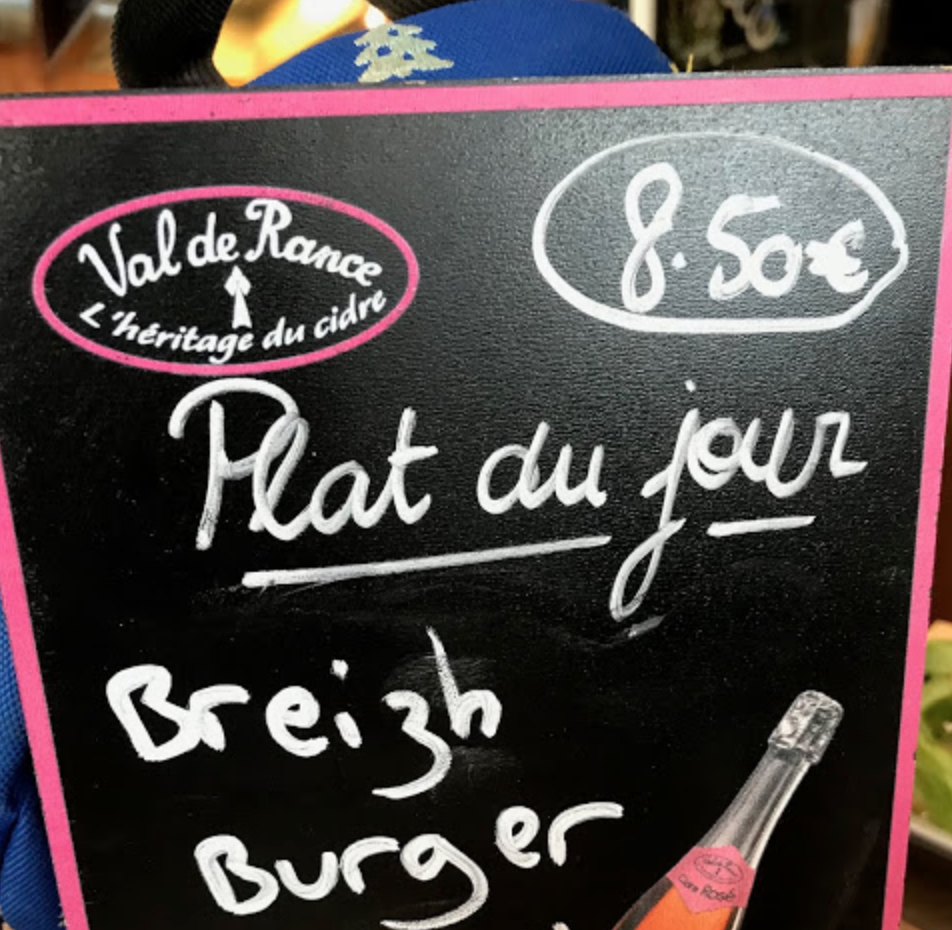 Val de Rance
L'héritage du cidre
8.50€
Plat du jour
Breizh
Burger
Cidre Rosé